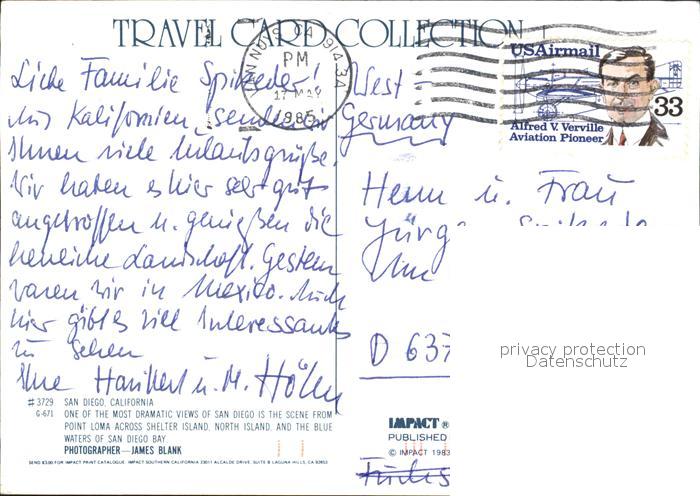 TRAVEL CARD COLLECTION
Liebe Familie Spitzeder!
Aus Kalifornien senden wir
Ihnen viele Urlaubsgrüße.
Wir haben es hier sehr gut
angetroffen u. genießen die
herrliche Landschaft. Gestern
waren wir in Mexico. Auch
hier gibt es viel Interessantes
zu sehen
Ihre u. M.
VAN NUYS, CA 914-3A
PM
17 MAY
1985
USAirmail
33
Alfred V. Verville
Aviation Pioneer
West-
Germany
Herrn u. Frau
D 637
privacy protection
Datenschutz
#3729 SAN DIEGO, CALIFORNIA
G-671 ONE OF THE MOST DRAMATIC VIEWS OF SAN DIEGO IS THE SCENE FROM
POINT LOMA ACROSS SHELTER ISLAND, NORTH ISLAND, AND THE BLUE
WATERS OF SAN DIEGO BAY.
PHOTOGRAPHER—JAMES BLANK
SEND $3.00 FOR IMPACT PRINT CATALOGUE. IMPACT SOUTHERN CALIFORNIA 23011 ALCALDE DRIVE, SUITE B LAGUNA HILLS, CA 92653
IMPACT®
PUBLISHED
© IMPACT 1983